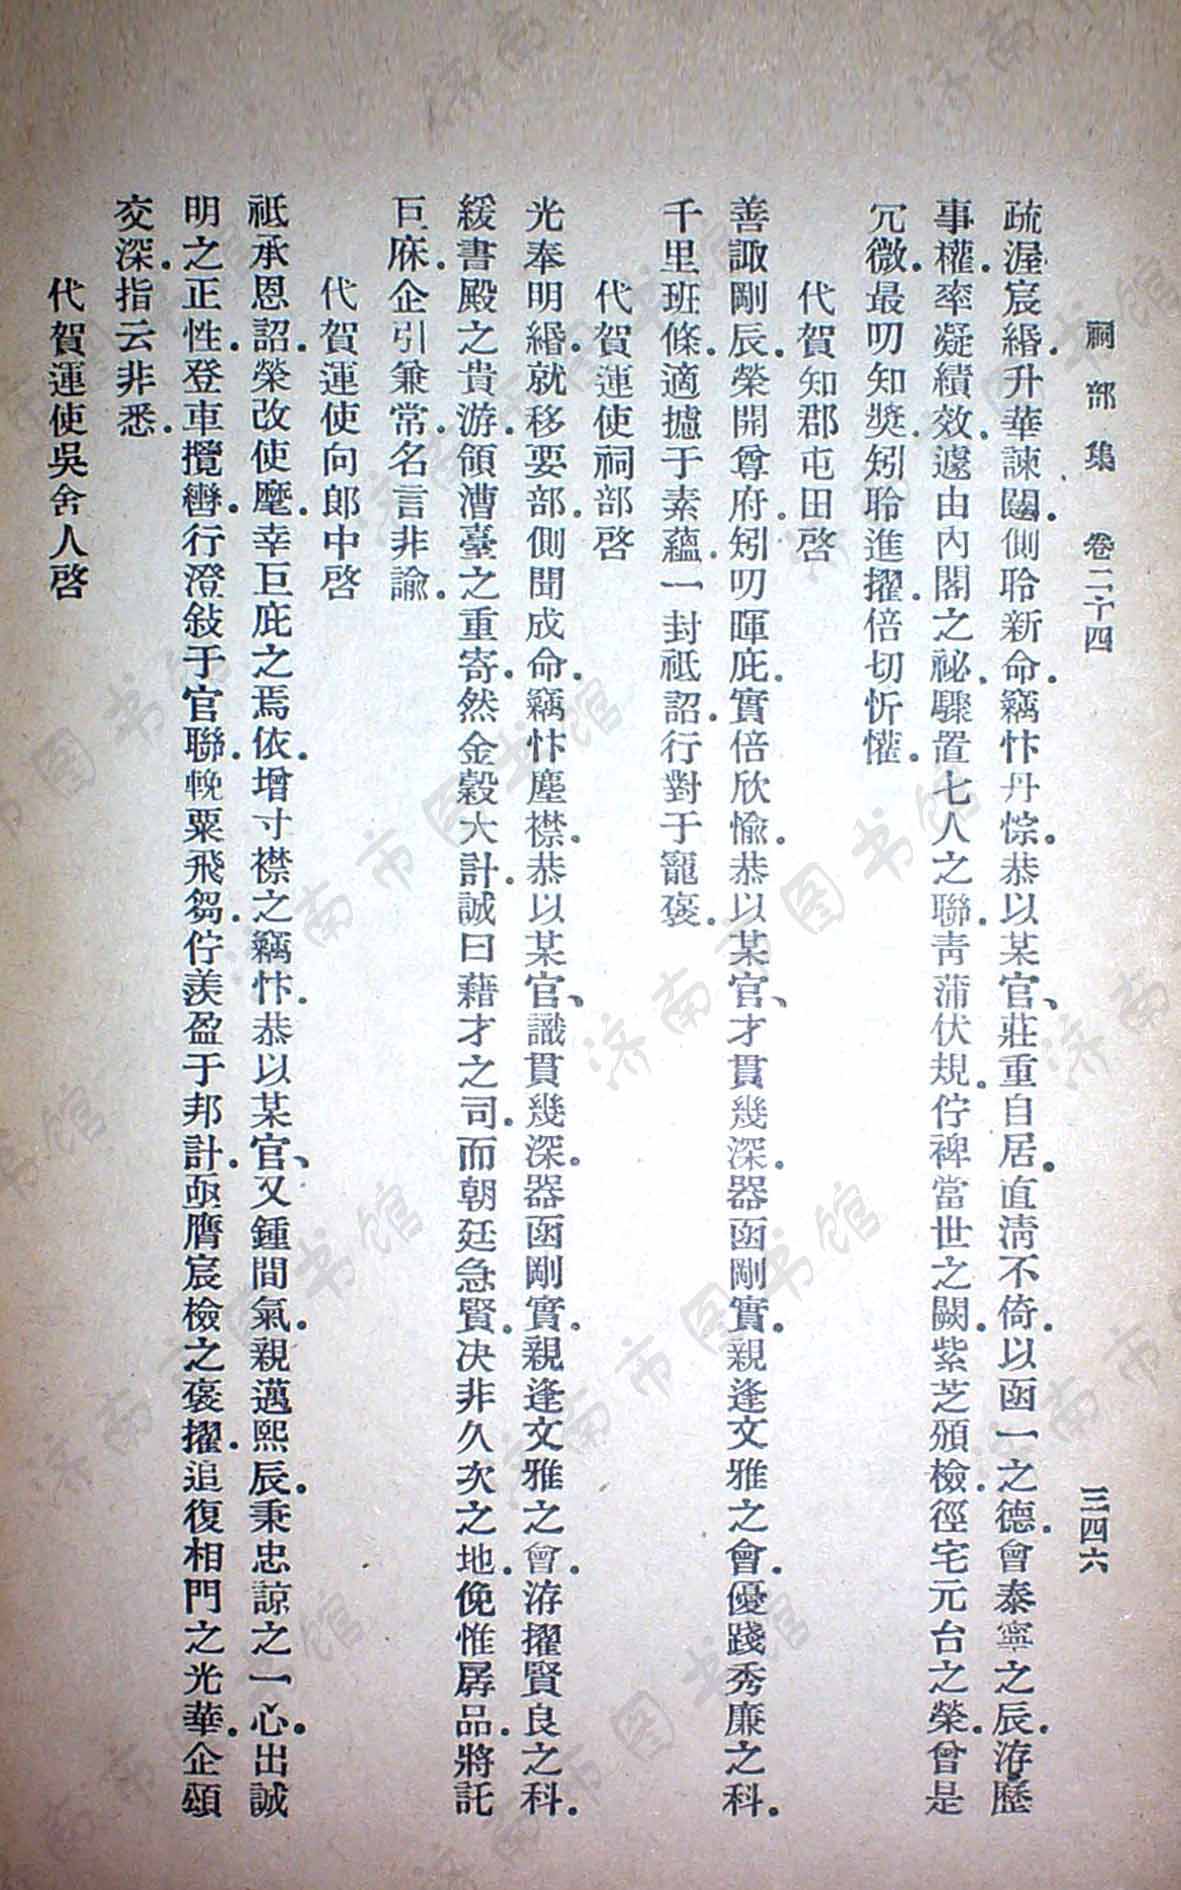 祠部集　卷二十四　三四六
疏渥宸緡。升華諫闥。側聆新命。竊忭丹悰。恭以某官、莊重自居。直淸不倚。以函一之德。會泰寧之辰。洊歷
事權。率凝績效。遽由內閣之祕。驟置七人之聯。靑蒲伏規。佇裨當世之闕。紫芝頒檢。徑宅元台之榮。曾是
冗微。最叨知奬。矧聆進擢。倍切忻懽。
代賀知郡屯田啓
善諏剛辰。榮開尊府。矧叨暉庇。實倍欣愉。恭以某官、才貫幾深。器函剛實。親逢文雅之會。優踐秀廉之科。
千里班條。適攄于素蘊。一封祗詔。行對于寵褒。
代賀運使祠部啓
光奉明緡。就移要部。側聞成命。竊忭塵襟。恭以某官、識貫幾深。器函剛實。親逢文雅之會。洊擢賢良之科。
緩書殿之貴游。領漕臺之重寄。然金穀大計。誠曰藉才之司。而朝廷急賢。决非久次之地。俛惟孱品。將託
巨庥。企引兼常。名言非諭。
代賀運使向郞中啓
祗承恩詔。榮改使麾。幸巨庇之焉依。增寸襟之竊忭。恭以某官、又鍾間氣。親邁熙辰。秉忠諒之一心。出誠
明之正性。登車攬轡。行澄敍于官聯。輓粟飛芻。佇羨盈于邦計。亟膺宸檢之褒擢。追復相門之光華。企頌
交深。指云非悉。
代賀運使吳舍人啓
济南市图书馆